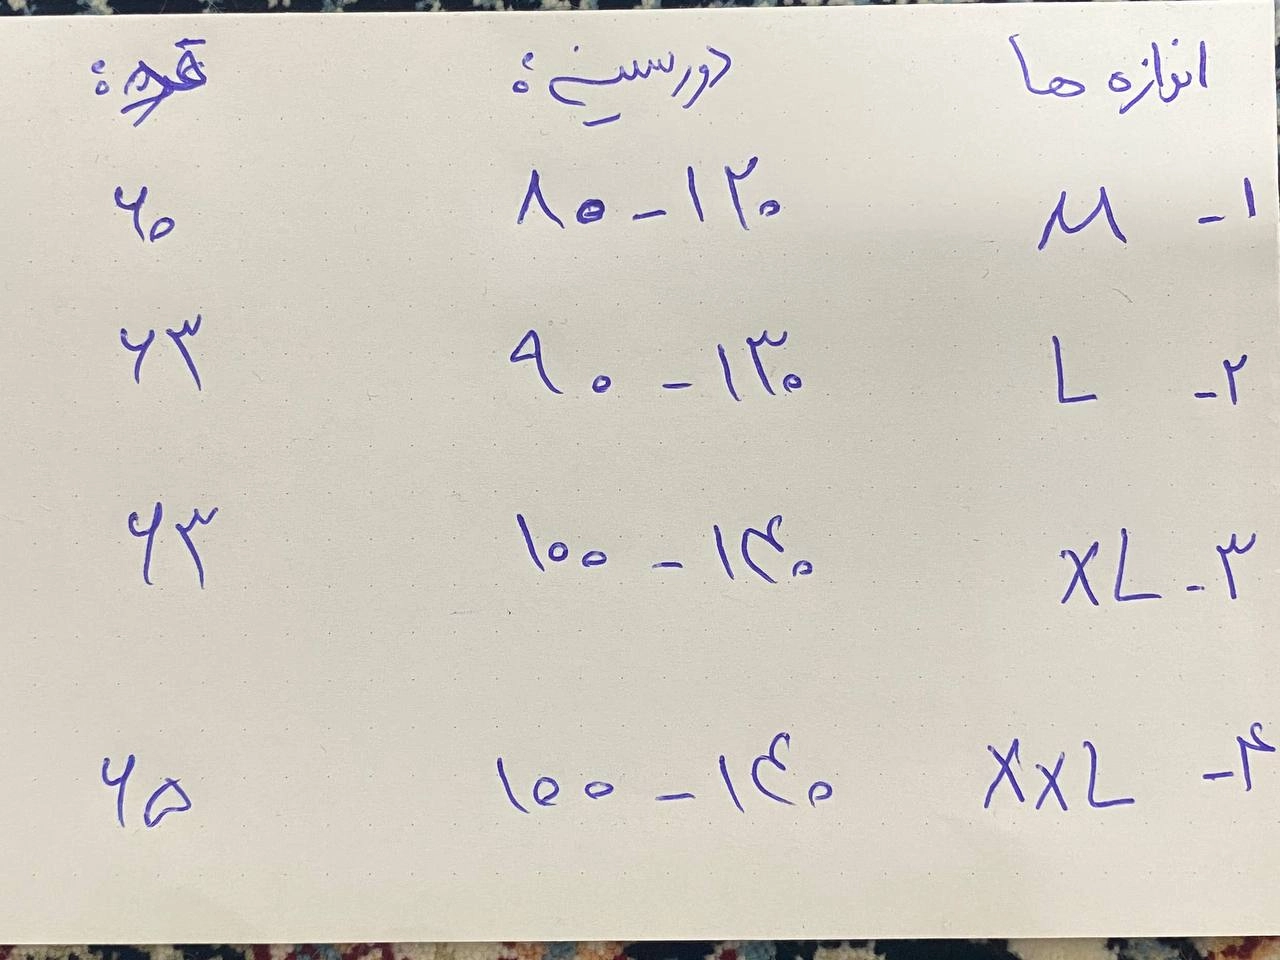 اندازه ها دور سینه: قد:
۱- M ۸۰-۱۲۰ ۶۰
۲- L ۹۰-۱۳۰ ۶۳
۳- XL ۱۰۰-۱۴۰ ۶۳
۴- XXL ۱۰۰-۱۴۰ ۶۵